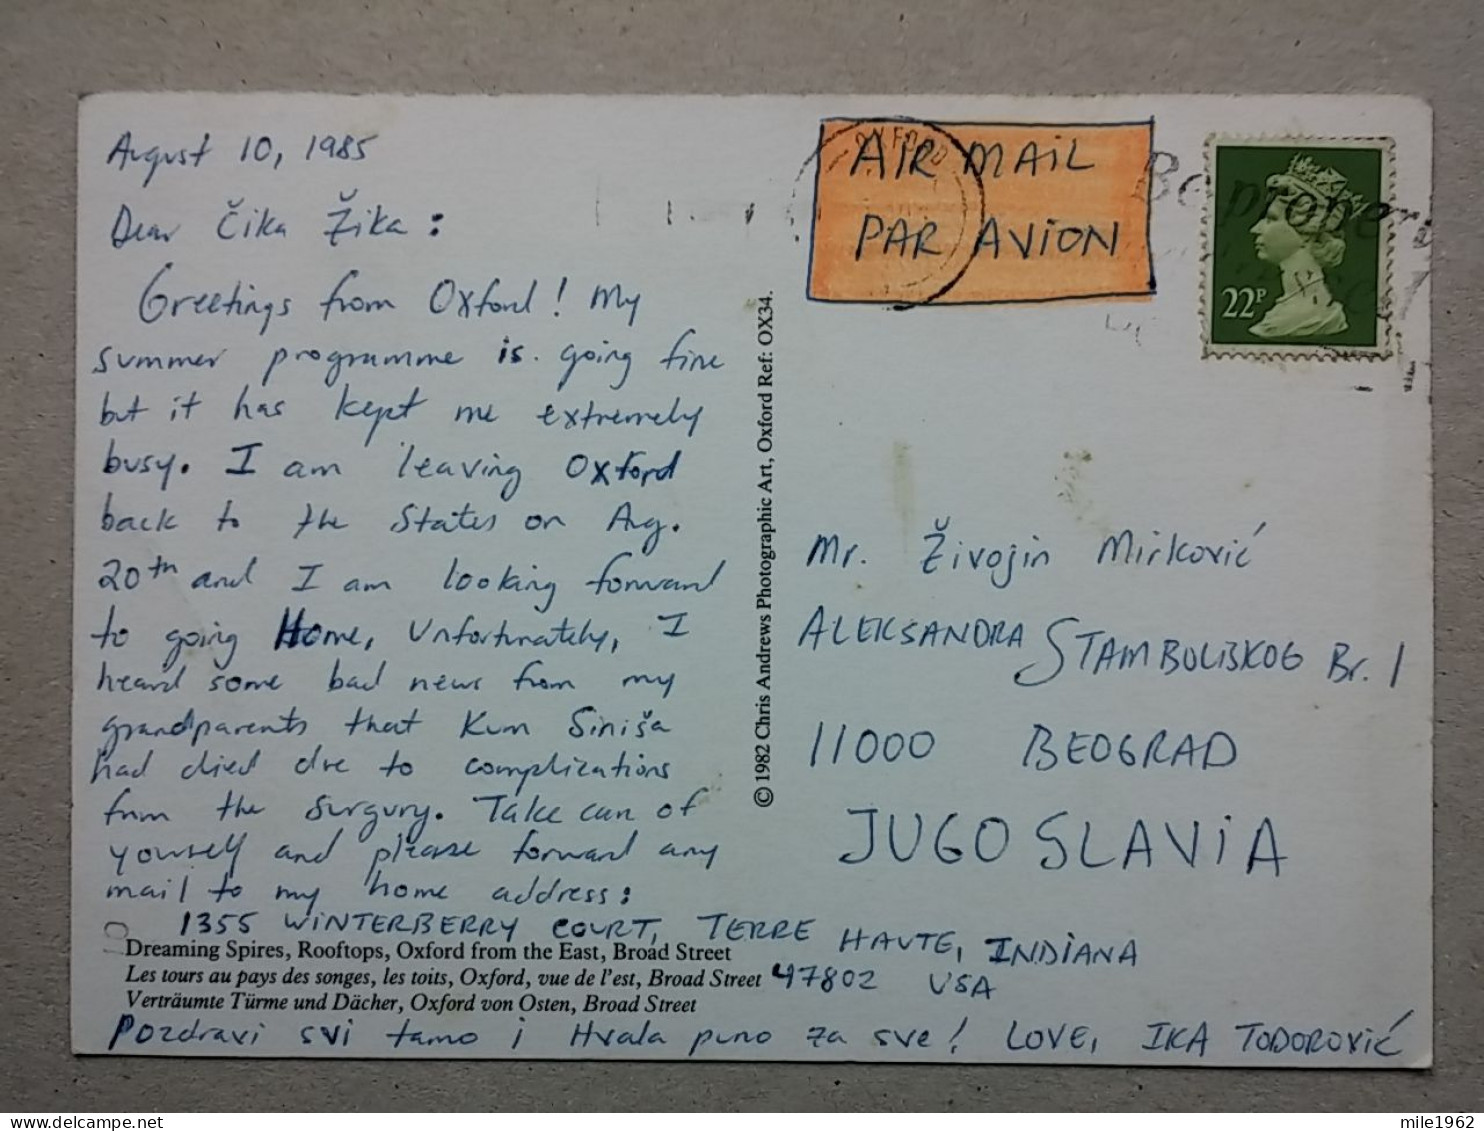 August 10, 1985
Dear Čika Žika:
Greetings from Oxford! My
summer programme is going fine
but it has kept me extremely
busy. I am leaving Oxford
back to the States on Aug.
20th and I am looking forward
to going Home, Unfortunately, I
heard some bad news from my
grandparents that Kum Siniša
had died due to complications
from the surgury. Take care of
yourself and please forward any
mail to my home address:
1355 WINTERBERRY COURT, TERRE HAUTE, INDIANA
47802 USA
Dreaming Spires, Rooftops, Oxford from the East, Broad Street
Les tours au pays des songes, les toits, Oxford, vue de l'est, Broad Street
Verträumte Türme und Dächer, Oxford von Osten, Broad Street
Pozdravi svi tamo i Hvala puno za sve! LOVE, IKA TODOROVIĆ
© 1982 Chris Andrews Photographic Art, Oxford Ref: OX34.
OXFORD
AIR MAIL
PAR AVION
Be proper
22P
Mr. Živojin Mirković
ALEKSANDRA STAMBOLISKOG Br. 1
11000 BEOGRAD
JUGOSLAVIA
mile1962